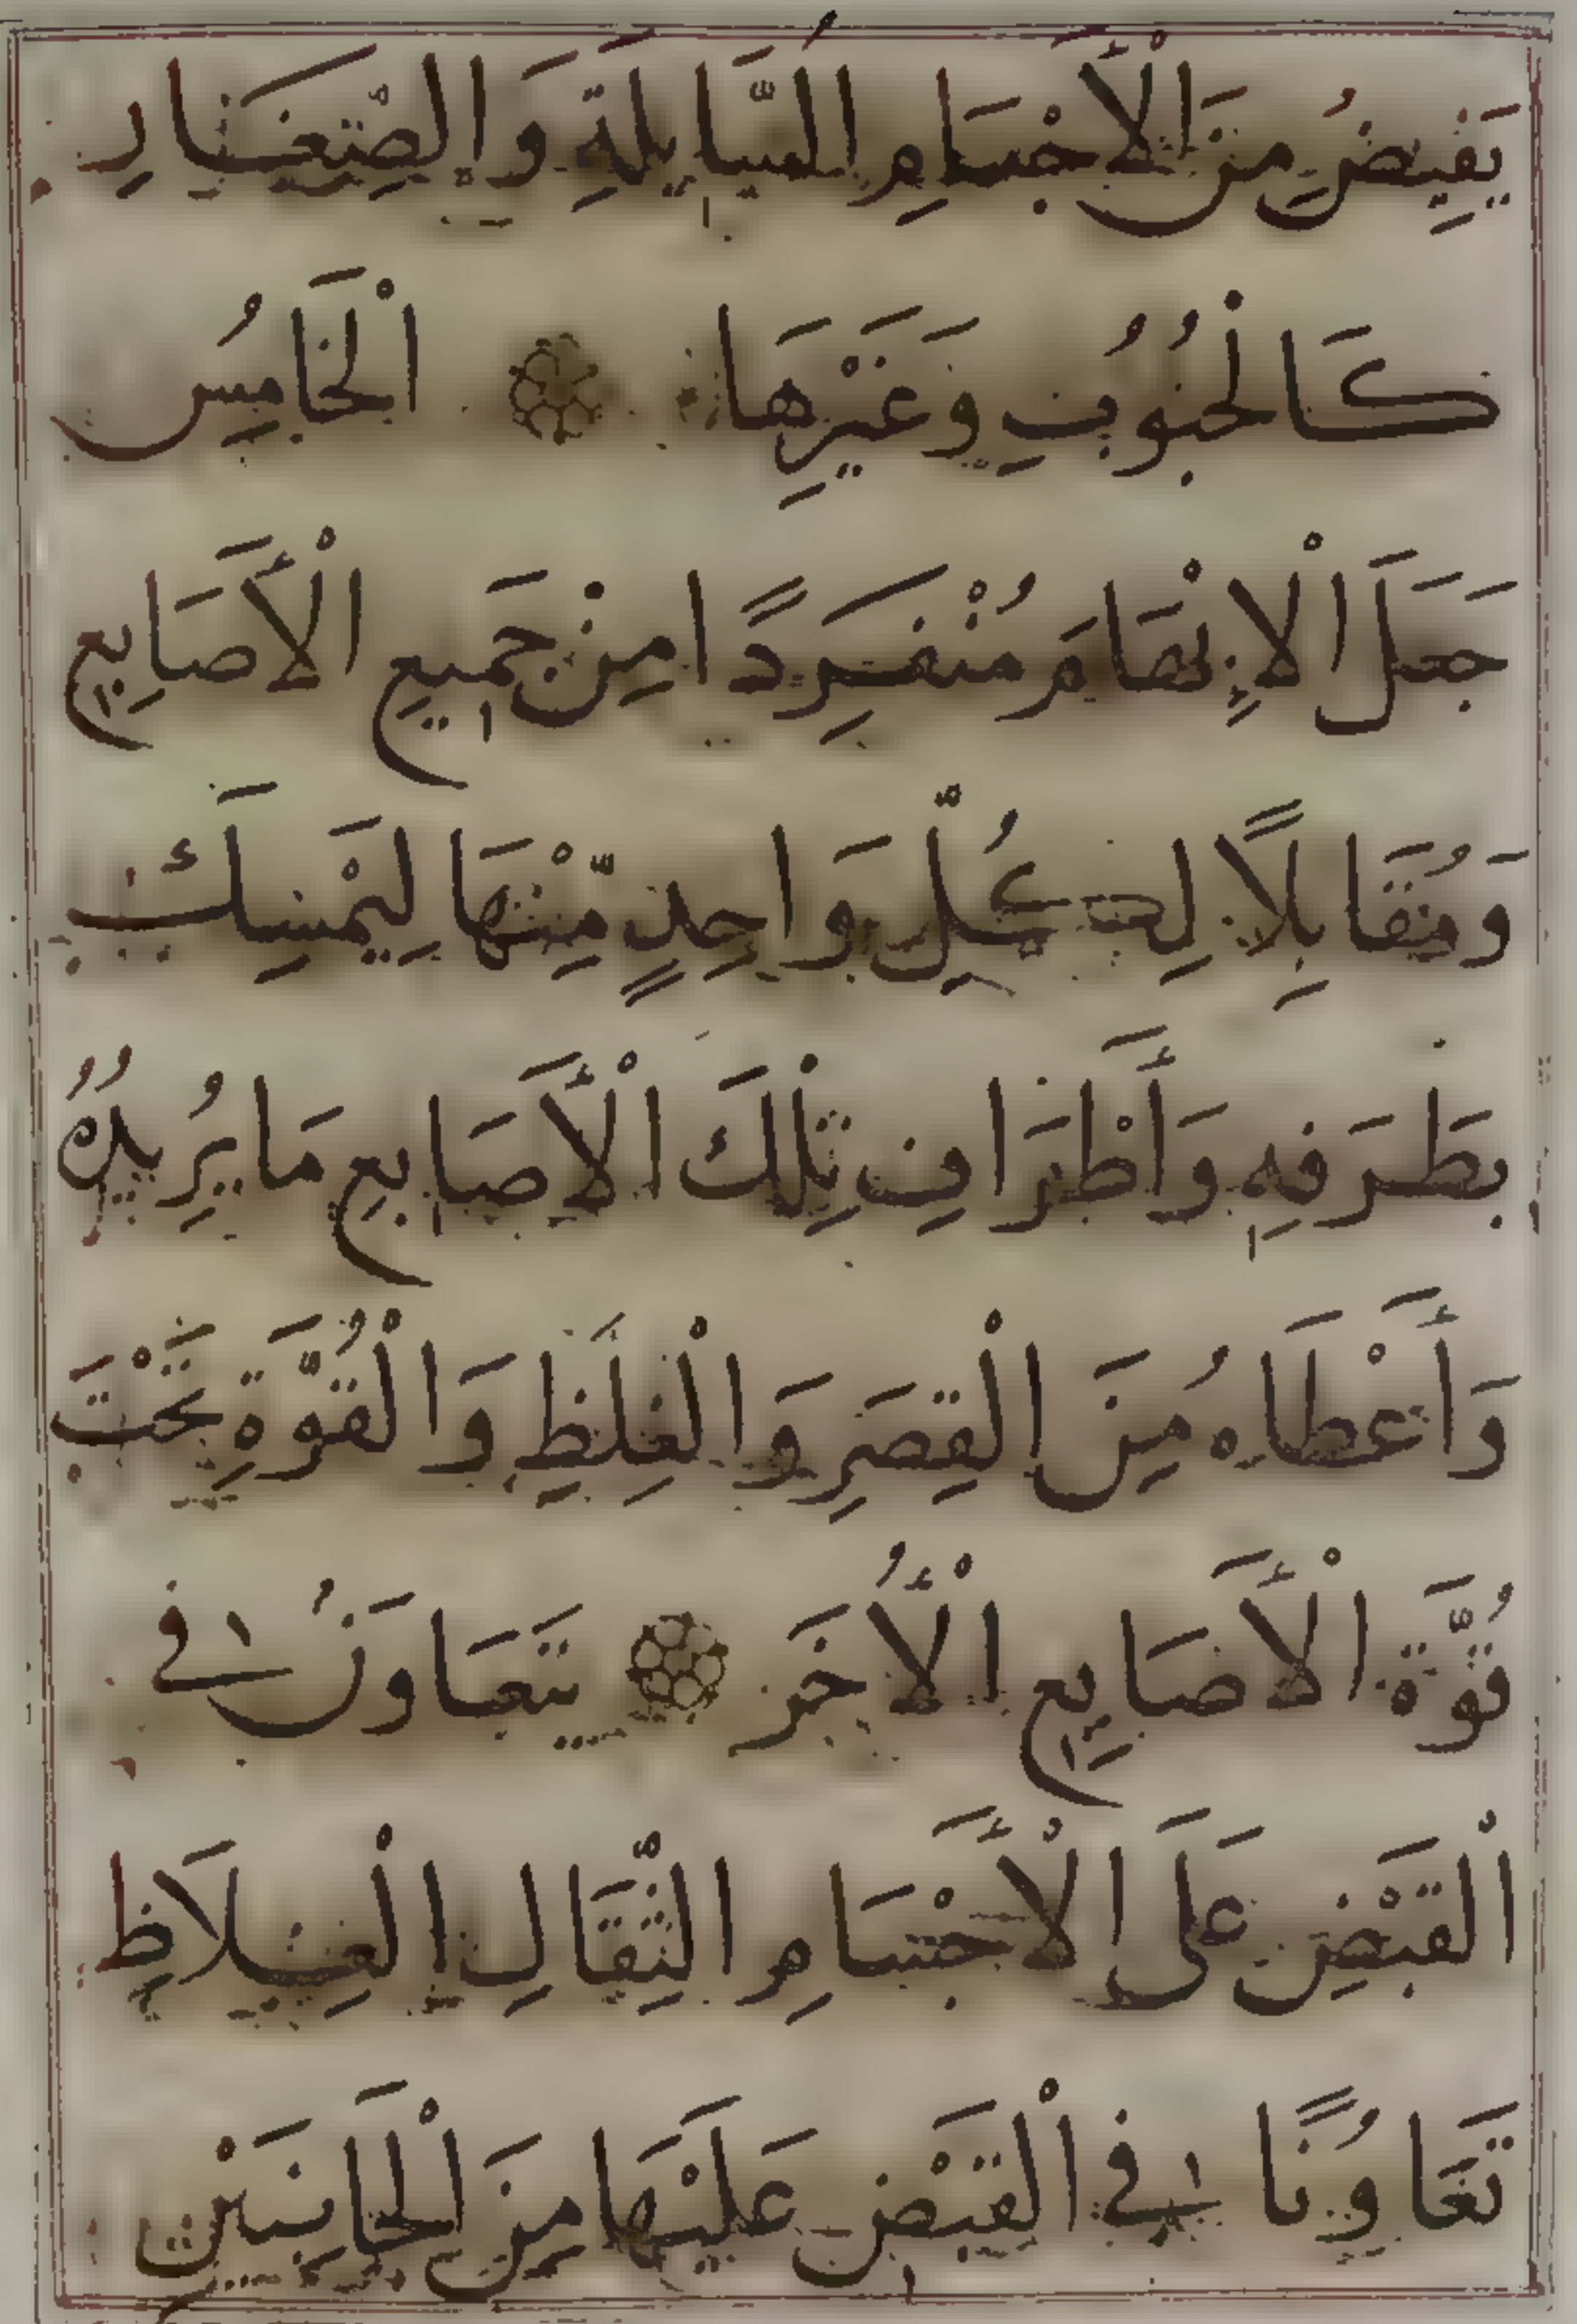 يَفِيضُ مِنَ الْأَجْسَامِ السَّايِلَةِ وَالصِّغَارِ
كَالْحُبُوبِ وَغَيْرِهَا اَلْخَامِسُ
جَعَلَ الْإِبْهَامَ مُنْفَرِدًا مِنْ جَمِيعِ الْأَصَابِعِ
وَمُقَابِلًا لِكُلِّ وَاحِدٍ مِّنْهَا لِيَمْسِكَ
بِطَرَفِهِ وَأَطْرَافِ تِلْكَ الْأَصَابِعِ مَا يُرِيدُهُ
وَأَعْطَاهُ مِنَ الْقِصَرِ وَالْغِلَظِ وَالْقُوَّةِ تَحْتَ
قُوَّةَ الْأَصَابِعِ الْأُخَرَ يَتَعَاوَنُ فِي
الْقَبْضِ عَلَى الْأَجْسَامِ الثِّقَالِ الْغِلَاظِ
تَعَاوُنًا فِي الْقَبْضِ عَلَيْهَا مِنَ الْجَانِبَيْنِ